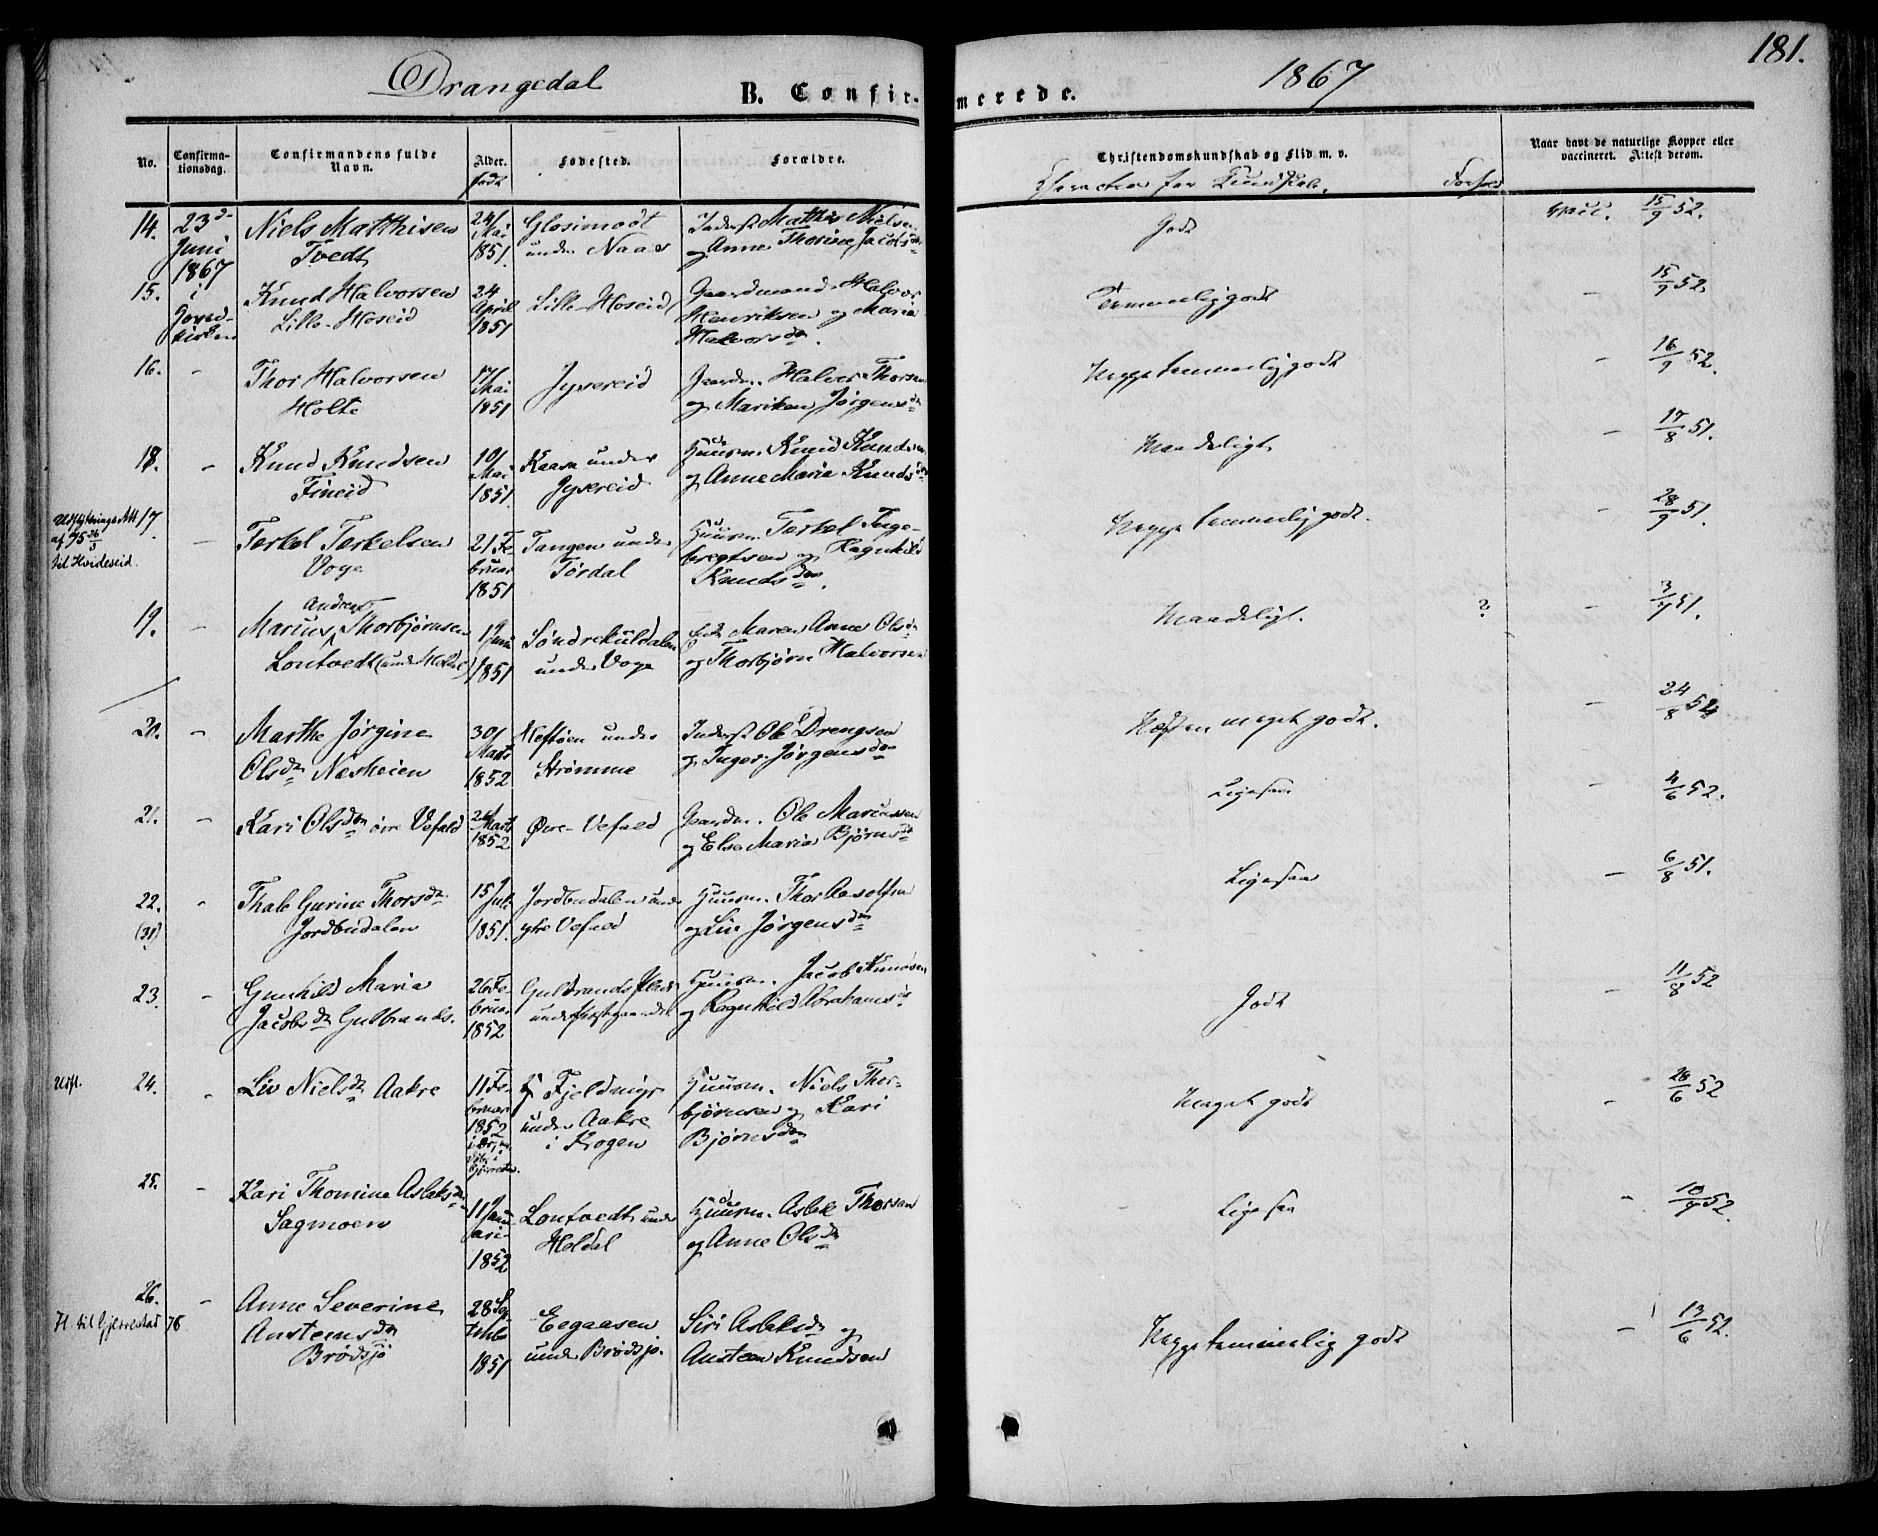 Drangedal
B. Confirmerede.
1867
181.
No. Confirmationsdag. Confirmandens fulde Navn. Alder. født Fødested. Forældre. Christendomskundskab og Flid m. v. Naar havt de naturlige Kopper eller vaccineret. Attest derom.
Charakter for Kundskab.
14. 23d Juni 1867 i
Niels Matthisen
Tvedt
24/ Mai 1851.
Glosimodt
under Naas
Inderst Mathis Nielsen
og Anne Thorine Jacobsdr
Godt
vacc. 15/9 52.
15.
Knud Halvorsen
Lille-Hoseid
24 April 1851
Lille-Hoseid
Gaardmand Halvor
Henriksen og Maria
Halvorsdr.
Temmelig godt
– 15/9 52
16. –
Thor Halvorsen
Holte
17/ Mai 1851
Jysereid
Gaardm. Halvor Thorsen
og Mariken Jørgensdr
Neppe temmelig godt
– 16/9 52.
18. –
Knud Knudsen
Fineid
10/ Mai 1851.
Kaasa under
Jysereid
Huusm. Knud Knudsen
og Anne Maria Knudsdr
Maadeligt
– 17/8 51.
Udflytnings Att
til Hvideseid.
17. –
Terkel Terkelsen
Voje
21 Februar 1851
Tangen under
Tørdal
Huusm. Terkel Inge-
bregtsen og Ragnhild
Knudsdr.
Neppe temmelig godt.
– 28/9 51.
19. –
Marius Andreas Thorbjørnsen
Lontvedt (under Heldal)
1851
Søndrekuldalen
under Voje
Maren Anne Olsdr
og Thorbjørn Halvorsen
Maadeligt.
?
–
20. –
Marthe Jørgine
Olsdr Næsheien
30/ Marts 1852
Heftøen under
Strømme
Inderst Ole Drengsen
og Inger Jørgensdr
Næsten meget godt.
– 24/8
21. –
Kari Olsdr øvre Vefald
Marts 1852
Øvre-Vefald
Gaardm. Ole Mariussen
og Else Maria Bjørnsdr
Ligesaa
– 4/6 52.
22. –
(31)
Thale Gurine Thorsdr
Jordbudalen
15 Juli 1851.
Jordbudalen under
ytre Vefald
Huusm. Thor Aasolfsen
og Liv Jørgensdr
Ligesaa
– 6/8 51.
23. –
Gunhild Maria
Jacobsdr Gulbrands.
26 Februar 1852
Gulbrands Plads
Huusm. Jacob Knudsen
og Ragnhild Abrahamsdr
Godt
– 11/8 52
Udfl.
24. –
Liv Nielsdr Aakre
11 Februar 1852
Fjeldmyr
under Aakre
i Krogen
Huusm. Niels Thor-
bjørnsen og Kari
Bjørnsdr
Meget godt
– 28/6 52
25. –
Kari Thomine Aslaksdr
Sagmoen
11 Januari 1852
Lontvedt under
Heldal
Huusm. Aslak Thorsen
og Anne Olsdr
Ligesaa
– 10/9 52.
26. –
Fl. til Gjerrestad 76
Anne Severine
Austensdr
Brødsjø
28 Septbr 1851
Eegaasen
under Brødsjø.
Siri Aslaksdr og
Austeen Knudsen
Neppe temmelig godt
– 13/6 52.